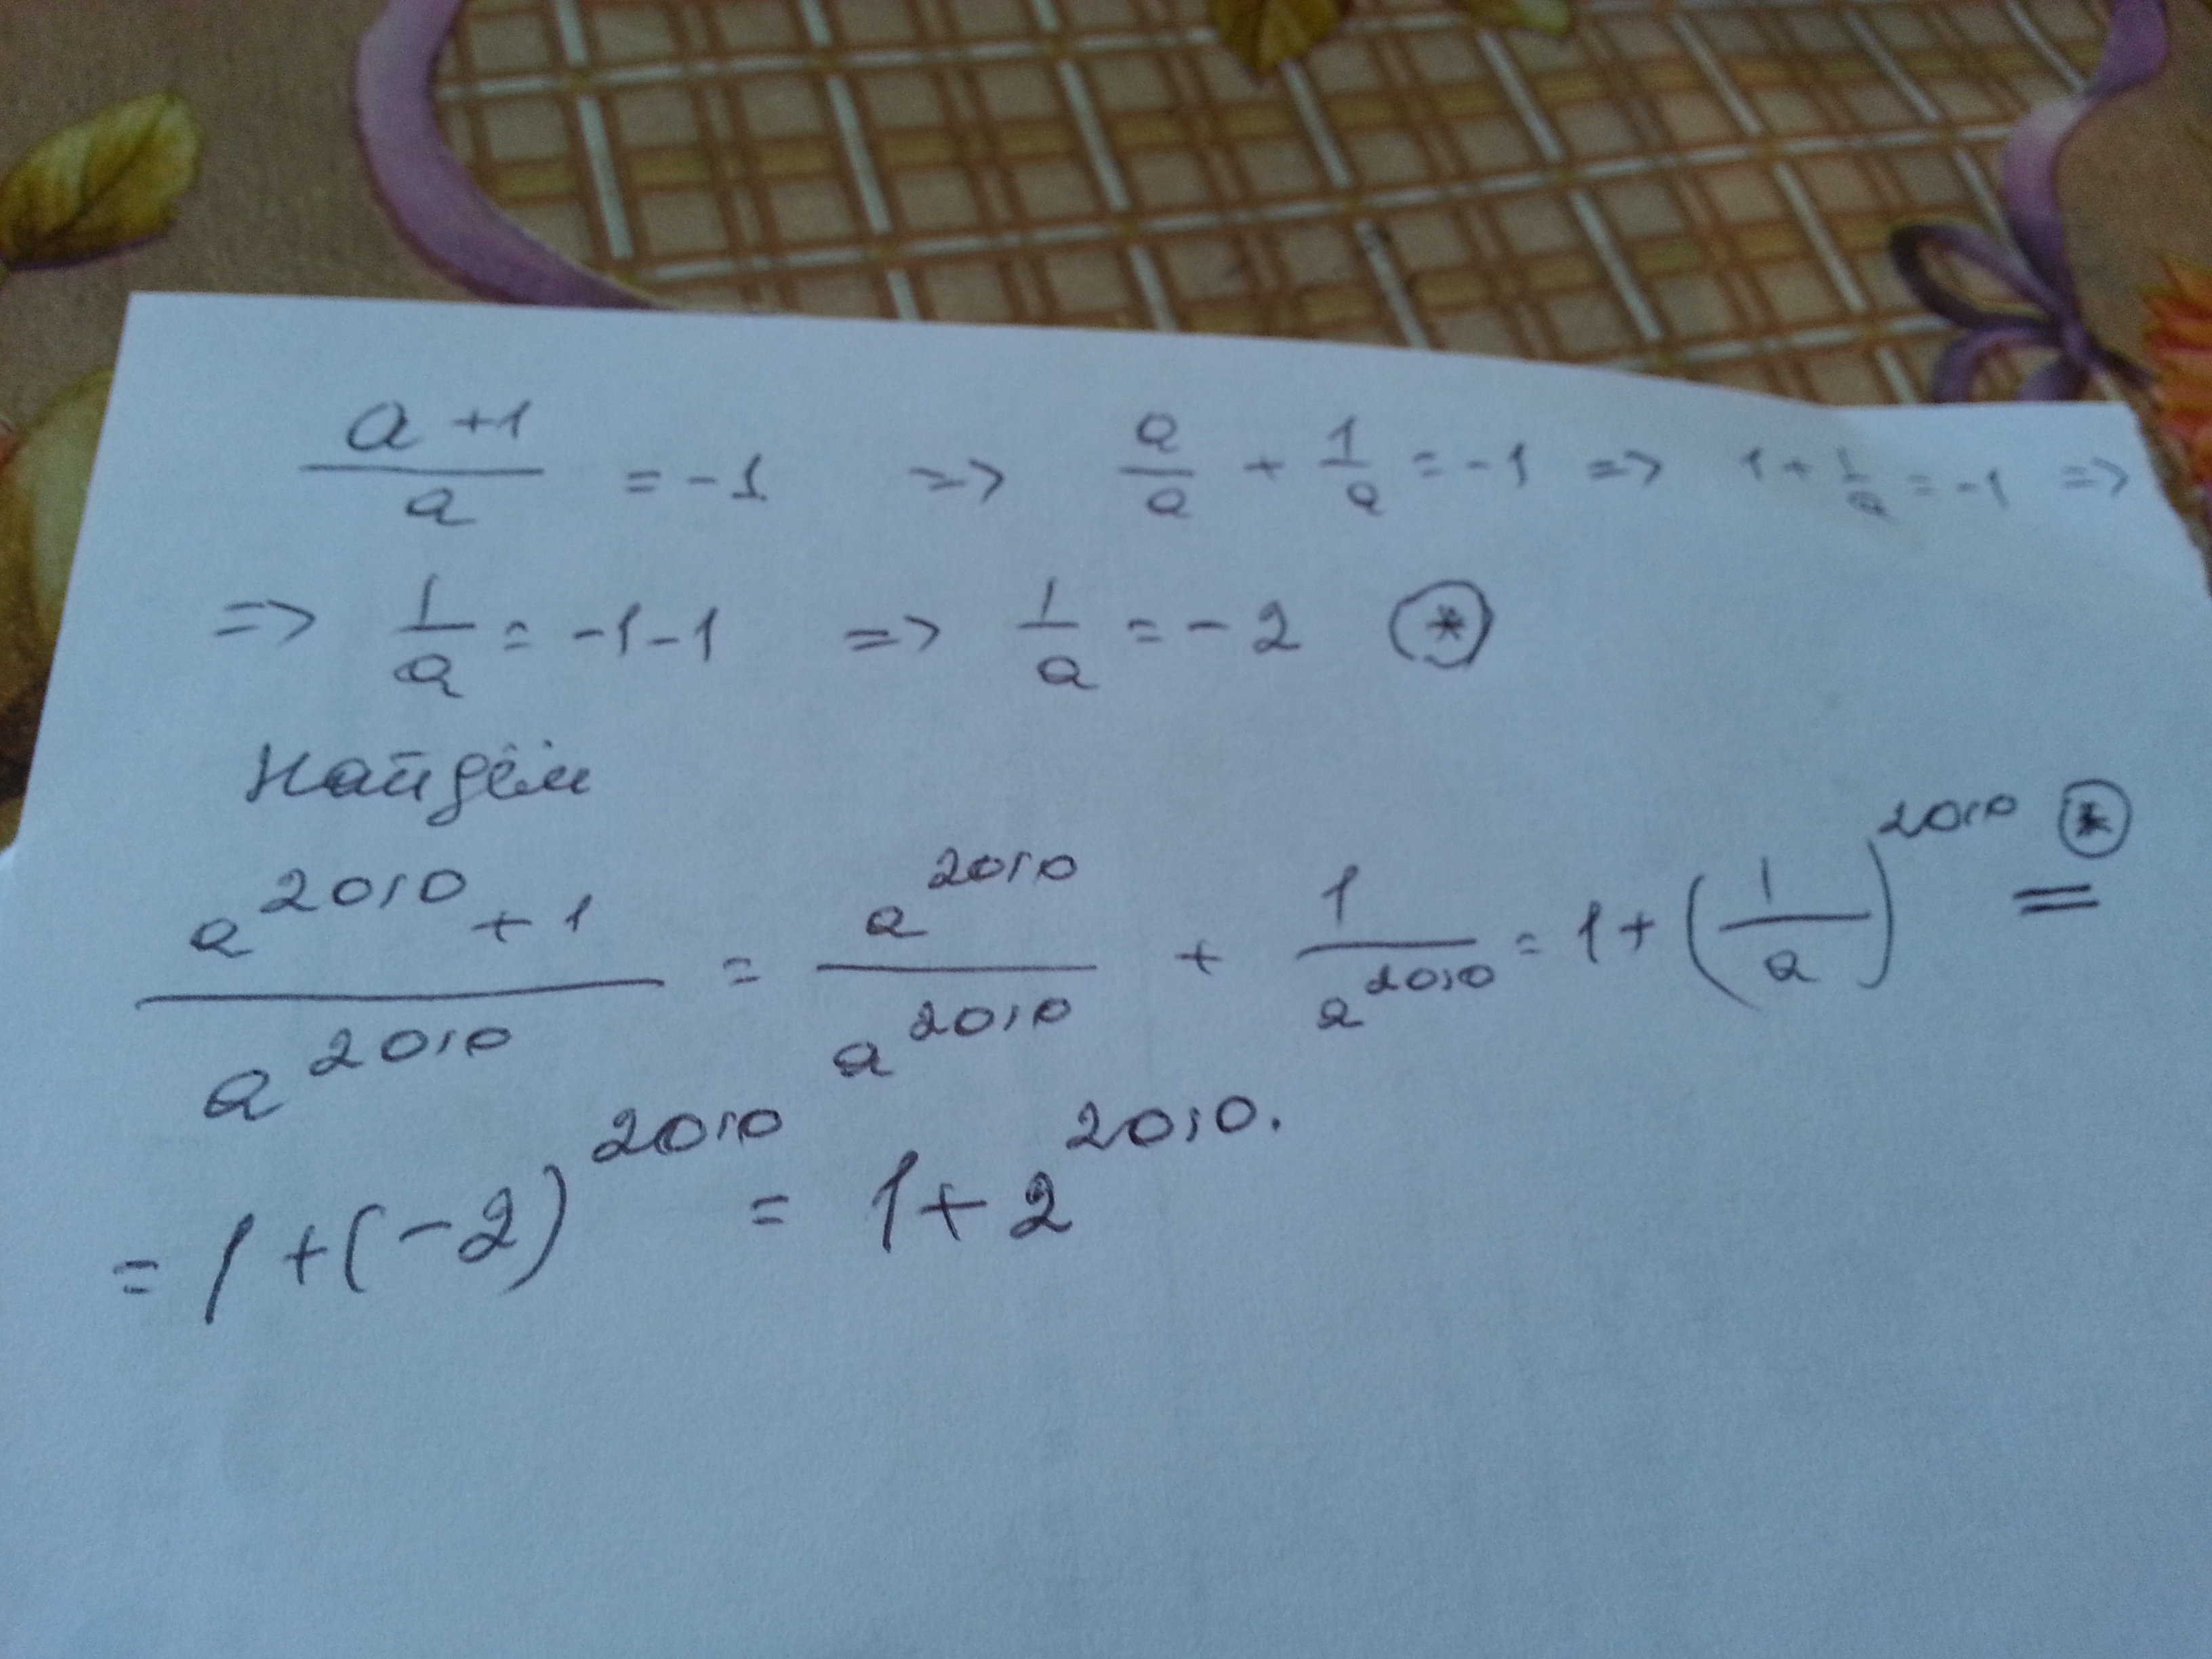 (a+1)/a = -1 => a/a + 1/a = -1 => 1 + 1/a = -1 =>
=> 1/a = -1-1 => 1/a = -2 (*)
Найдём
(a^2010 + 1)/a^2010 = a^2010/a^2010 + 1/a^2010 = 1 + (1/a)^2010 (*) =
= 1 + (-2)^2010 = 1 + 2^2010.